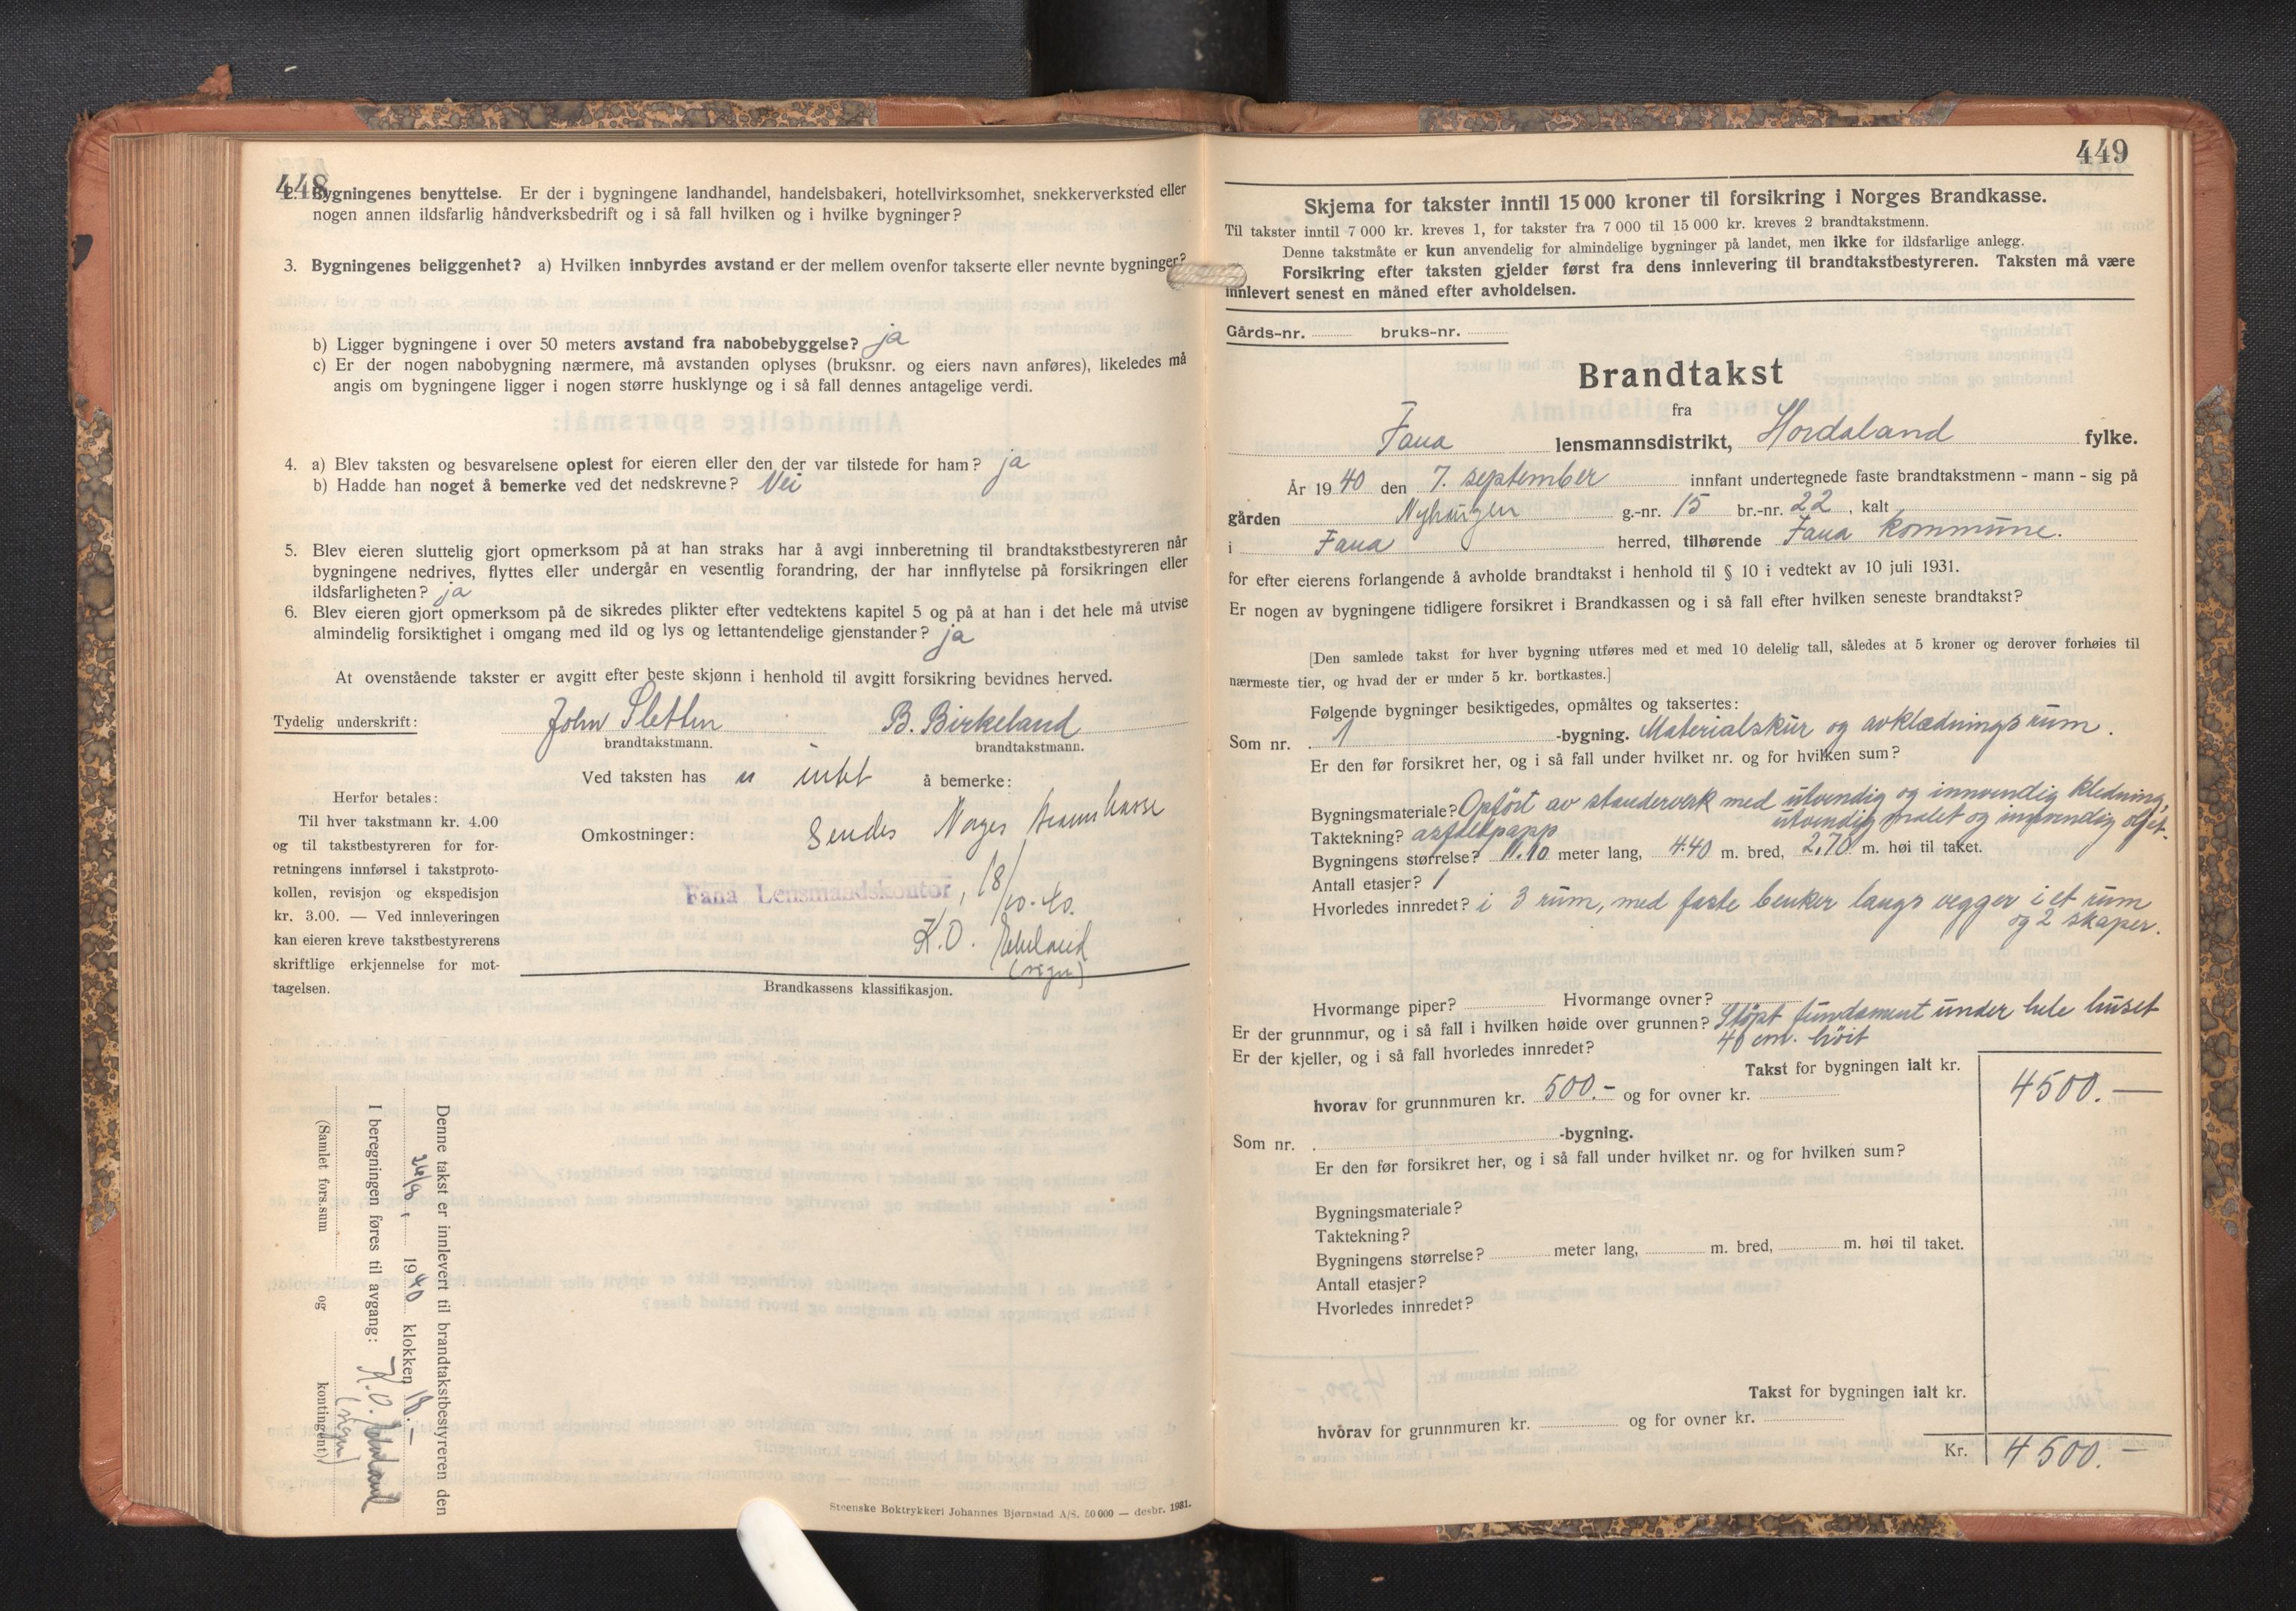 448
2. Bygningenes benyttelse. Er der i bygningene landhandel, handelsbakeri, hotellvirksomhet, snekkerverksted eller
nogen annen ildsfarlig håndverksbedrift og i så fall hvilken og i hvilke bygninger?
3. Bygningenes beliggenhet? a) Hvilken innbyrdes avstand er der mellem ovenfor takserte eller nevnte bygninger?
b) Ligger bygningene i over 50 meters avstand fra nabobebyggelse? ja
c) Er der nogen nabobygning nærmere, må avstanden oplyses (bruksnr. og eiers navn anføres), likeledes må
angis om bygningene ligger i nogen større husklynge og i så fall dennes antagelige verdi.
4. a) Blev taksten og besvarelsene oplest for eieren eller den der var tilstede for ham? ja
b) Hadde han noget å bemerke ved det nedskrevne? Nei
5. Blev eieren sluttelig gjort opmerksom på at han straks har å avgi innberetning til brandtakstbestyreren når
bygningene nedrives, flyttes eller undergår en vesentlig forandring, der har innflytelse på forsikringen eller
ildsfarligheten? ja
6. Blev eieren gjort opmerksom på de sikredes plikter efter vedtektens kapitel 5 og på at han i det hele må utvise
almindelig forsiktighet i omgang med ild og lys og lettantendelige gjenstander? ja
At ovenstående takster er avgitt efter beste skjønn i henhold til avgitt forsikring bevidnes herved.
Tydelig underskrift: John Sletten B. Birkeland
brandtakstmann. brandtakstmann.
Ved taksten has intet å bemerke:
Omkostninger: Sendes Norges
Fana Lensmandskontor, 18/10-40.
K.O.
(sign)
Herfor betales:
Til hver takstmann kr. 4.00
og til takstbestyreren for for-
retningens innførsel i takstproto-
kollen, revisjon og ekspedisjon
kr. 3.00. — Ved innleveringen
kan eieren kreve takstbestyrerens
skriftlige erkjennelse for mot-
tagelsen.
Brandkassens klassifikasjon.
Denne takst er innlevert til brandtakstbestyreren den
1940 klokken
I beregningen føres til avgang: K.O.
(sign)
(Samlet fors.sum og kontingent)
Steenske Boktrykkeri Johannes Bjørnstad A/S. 50 000 — desbr. 1931.
449
Skjema for takster inntil 15 000 kroner til forsikring i Norges Brandkasse.
Til takster inntil 7 000 kr. kreves 1, for takster fra 7 000 til 15 000 kr. kreves 2 brandtakstmenn.
Denne takstmåte er kun anvendelig for almindelige bygninger på landet, men ikke for ildsfarlige anlegg.
Forsikring efter taksten gjelder først fra dens innlevering til brandtakstbestyreren. Taksten må være
innlevert senest en måned efter avholdelsen.
Gårds-nr. bruks-nr.
Brandtakst
fra
Fana lensmannsdistrikt, Hordaland fylke.
År 1940 den 7. september innfant undertegnede faste brandtakstmenn - mann - sig på
gården Nyhaugen g.-nr. 15 br.-nr. 22, kalt
i Fana herred, tilhørende Fana kommune.
for efter eierens forlangende å avholde brandtakst i henhold til § 10 i vedtekt av 10 juli 1931.
Er nogen av bygningene tidligere forsikret i Brandkassen og i så fall efter hvilken seneste brandtakst?
[Den samlede takst for hver bygning utføres med et med 10 delelig tall, således at 5 kroner og derover forhøies til
nærmeste tier, og hvad der er under 5 kr. bortkastes.]
Følgende bygninger besiktigedes, opmåltes og taksertes:
Som nr. 1 -bygning. Materialskur og avklædningsrum.
Er den før forsikret her, og i så fall under hvilket nr. og for hvilken sum?
Bygningsmateriale? Opført av standerverk med utvendig og innvendig kledning,
utvendig malet og innvendig oljet.
Taktekning? asfaltpapp
Bygningens størrelse? 11.10 meter lang, 4.40 m. bred, 2,70 m. høi til taket.
Antall etasjer? 1
Hvorledes innredet? i 3 rum, med faste benker langs vegger i et rum
og 2 skaper.
Hvormange piper? Hvormange ovner?
Er der grunnmur, og i så fall i hvilken høide over grunnen? Støpt fundament under hele huset
40 cm. høit
Er der kjeller, og i så fall hvorledes innredet?
Takst for bygningen ialt kr. 4500.—
hvorav for grunnmuren kr. 500.- og for ovner kr.
Som nr. -bygning.
Er den før forsikret her, og i så fall under hvilket nr. og for hvilken sum?
Bygningsmateriale?
Taktekning?
Bygningens størrelse? meter lang, m. bred, m. høi til taket.
Antall etasjer?
Hvorledes innredet?
Takst for bygningen ialt kr.
hvorav for grunnmuren kr. og for ovner kr.
Kr. 4500.—